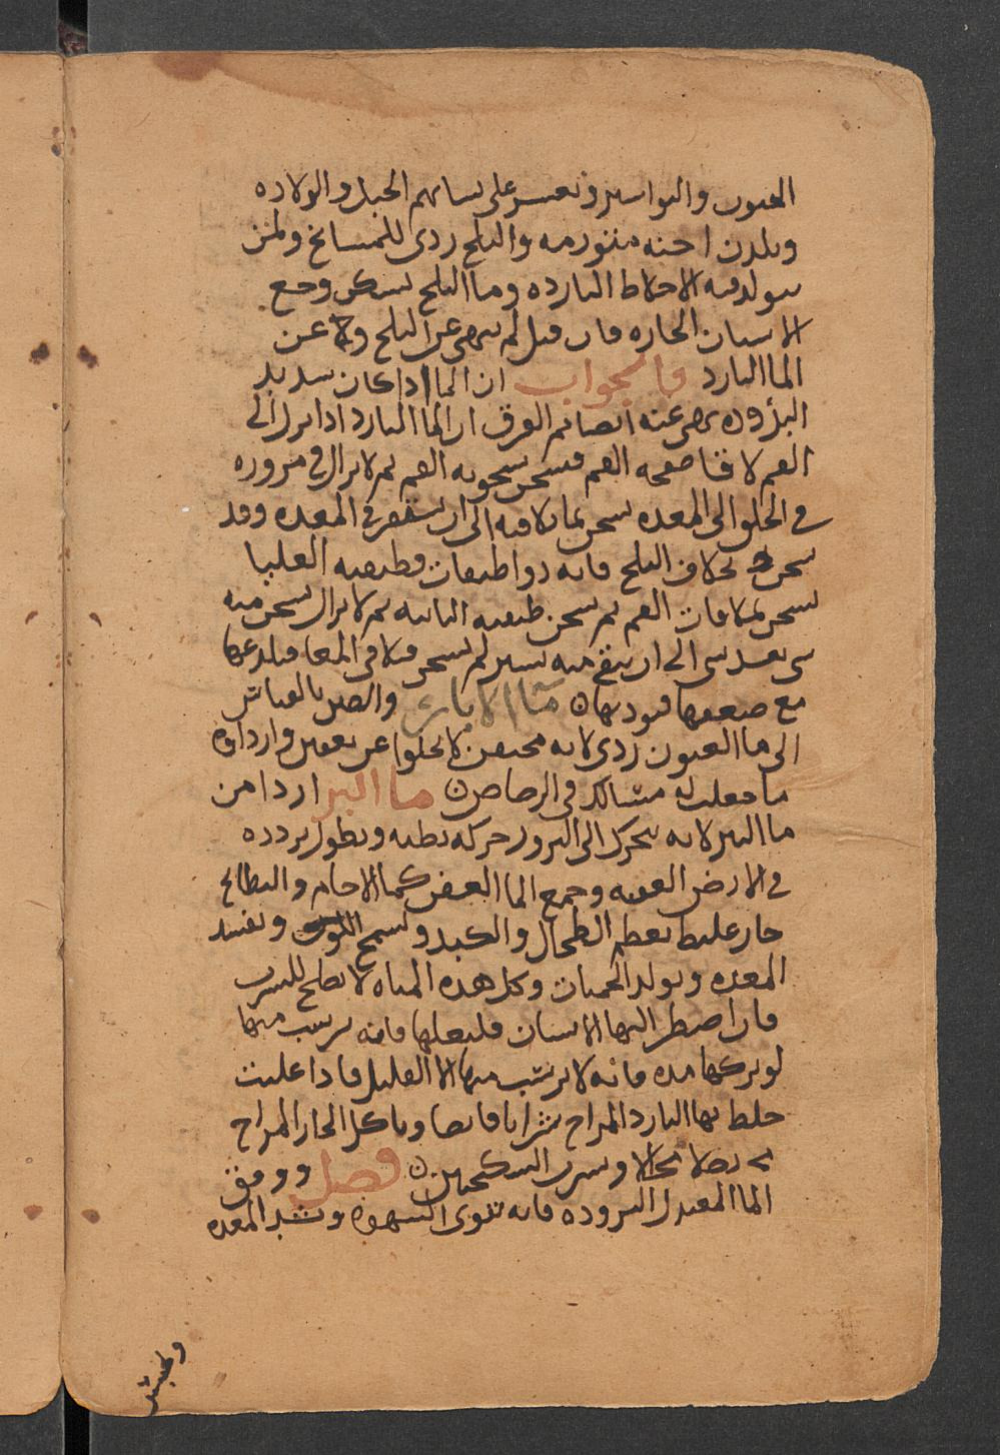 الجنون والبواسير وتعسر على نسائهم الحبل والولاده
ويلدن اجنه متورمه والثلج ردى للمشايخ ولمن
يتولد فيه الاخلاط البارده وما الثلج يسكن وجع
الاسنان الحاره فان قيل لم نهى عن الثلج ولا عن
الما البارد فالجواب ان الما اذا كان شديد
البروده نهى عنه ايضا ثم الفرق ان الما البارد اذا نزل الى
الفم لاقا صفحه الفم فسخن بسخونه الفم ثم لا يزال فى مروره
فى الحلق والى المعده يسخن بما يلاقيه الى ان يستقر فى المعده وقد
سخن بخلاف الثلج فانه ذو اطبقات فطبقته العليا
تسخن بملاقات الفم ثم تسخن طبقته الثانيه ثم لا يزال يسخن منه
شى بعد شى الى ان يبقى منه يسير لم يسخن فيلاقى المعا فيلذعها
مع ضعفها فيوذيها ما الابار والقنى بالقياس
الى ما العيون ردى لانه محتقن لا يخلوا عن تعفن واردأوه
ما جعلت له مسالك فى الرصاص ما النز اردا من
ما البير لانه يتحرك الى البروز حركه بطيه ويطول تردده
فى الارض العفنه وجميع الما العفن كما الاجام والبطائح
حار غليظ يعظم الطحال والكبد ويسمج اللون ويفسد
المعده ويولد الحميات وكل هذه المياه لا تصلح للشرب
فان اضطر اليها الانسان فليغلها فانه يرسب منها
لو تركها مده فانه لا يرسب منها الا القليل فاذا غليت
خلط بها البارد المزاج شرابا قابضا وياكل الحار المزاج
بصلا مخللا ويشرب السكنجبين فصل ووفق
الما المعتدل البروده فانه تقوى الشهوه وتشد المعده